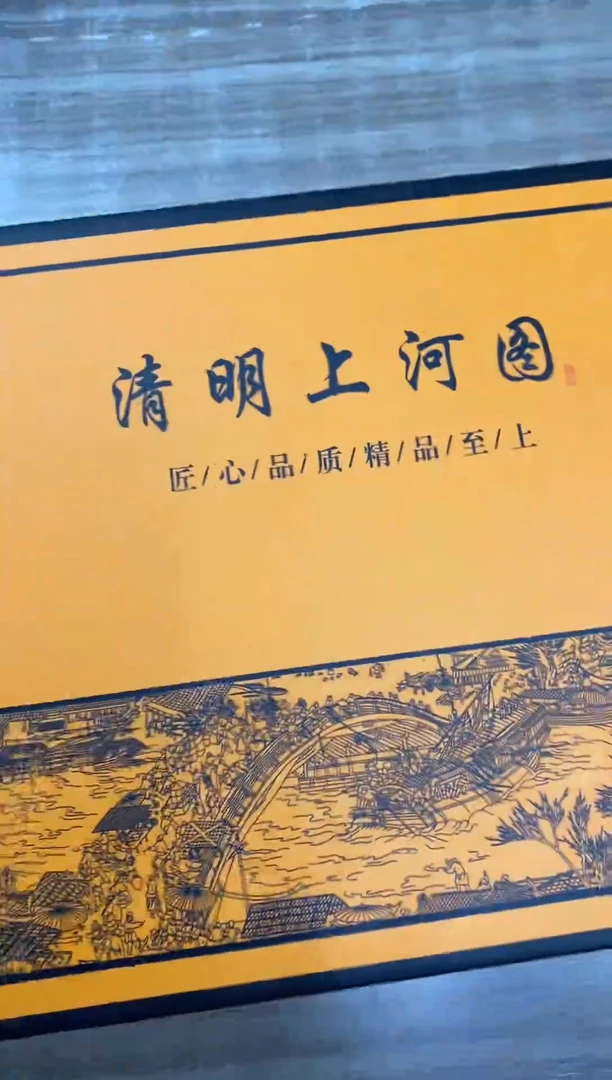 清明上河图
匠/心/品/质/精/品/至/上